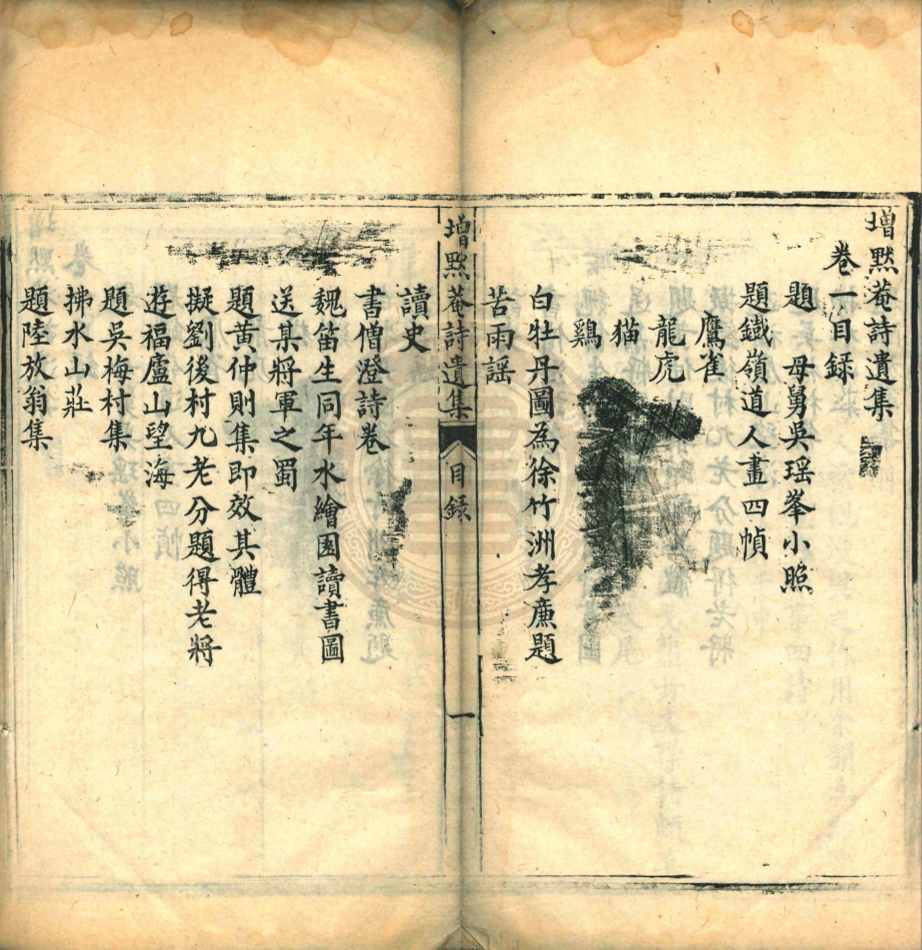 增默菴詩遺集
卷一目録
題 母舅吳瑶峯小照
題鐵嶺道人畫四幀
鷹雀
龍虎
猫
鷄
白牡丹圖為徐竹洲孝廉題
苦雨謡
增默菴詩遺集 目録 一
讀史
書僧澄詩卷
魏笛生同年水繪園讀書圖
送某將軍之蜀
題黄仲則集即效其體
擬劉後村九老分題得老將
遊福廬山望海
題吳梅村集
拂水山莊
題陸放翁集